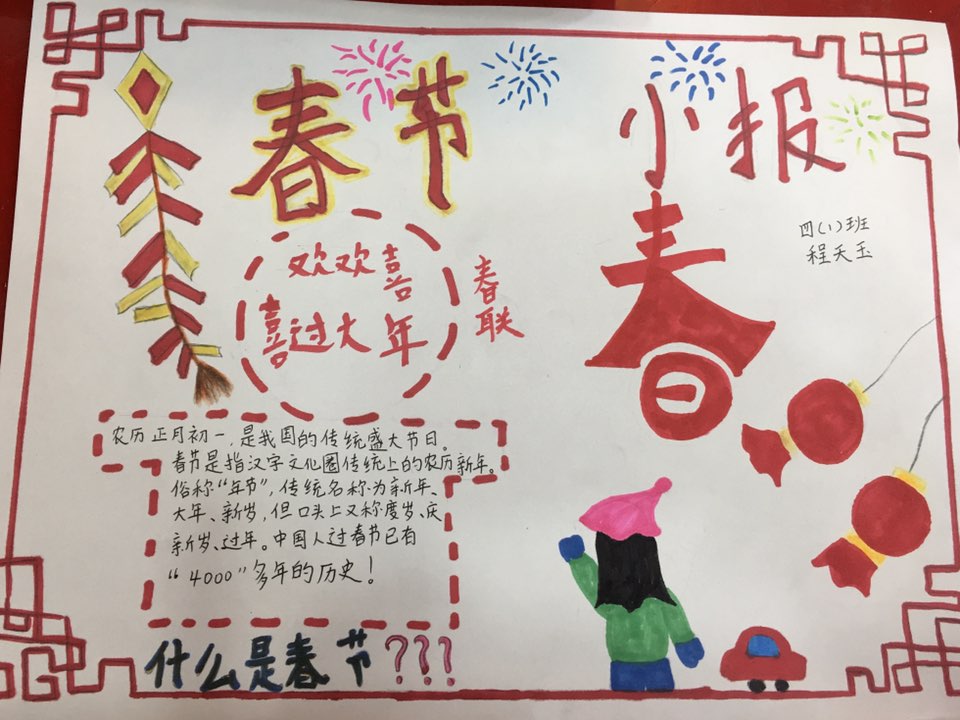 春节 小报
四(1)班
程天玉
欢欢喜
喜过大年
春联
春
农历正月初一,是我国的传统盛大节日。
春节是指汉字文化圈传统上的农历新年。
俗称“年节”,传统名称为新年、
大年、新岁,但口头上又称度岁、庆
新岁、过年。中国人过春节已有
“4000”多年的历史!
什么是春节???